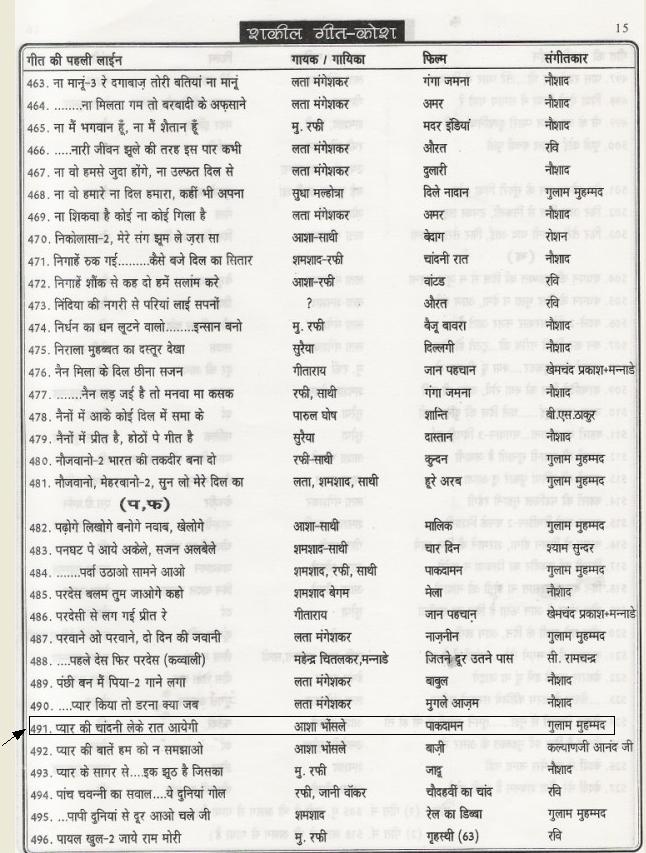 शकील गीत-कोश 15
गीत की पहली लाईन गायक / गायिका फिल्म संगीतकार
463. ना मानूं-3 रे दगाबाज़ तोरी बतियां ना मानूं लता मंगेशकर गंगा जमना नौशाद
464. ........ना मिलता गम तो बरबादी के अफ़साने लता मंगेशकर अमर नौशाद
465. ना मैं भगवान हूँ, ना मैं शैतान हूँ मु. रफी मदर इंडियां नौशाद
466. .....नारी जीवन झूले की तरह इस पार कभी लता मंगेशकर औरत रवि
467. ना वो हमसे जुदा होंगे, ना उल्फत दिल से लता मंगेशकर दुलारी नौशाद
468. ना वो हमारे ना दिल हमारा, कहीं भी अपना सुधा मल्होत्रा दिले नादान गुलाम मुहम्मद
469. ना शिकवा है कोई ना कोई गिला है लता मंगेशकर अमर नौशाद
470. निकोलासा-2, मेरे संग झूम ले ज़रा सा आशा-साथी बेदाग रोशन
471. निगाहें रुक गई.......कैसे बजे दिल का सितार शमशाद-रफी चांदनी रात नौशाद
472. निगाहें शौंक से कह दो हमें सलांम करे आशा-रफी वांटड रवि
473. निंदिया की नगरी से परियां लाई सपनों ? औरत रवि
474. निर्धन का धन लूटने वालो........इन्सान बनो मु. रफी बैजू बावरा नौशाद
475. निराला मुहब्बत का दस्तूर देखा सुरैया दिल्लगी नौशाद
476. नैन मिला के दिल छीना सजन गीताराय जान पहचान खेमचंद प्रकाश+मन्नाडे
477. ........नैन लड़ जई है तो मनवा मा कसक रफी, साथी गंगा जमना नौशाद
478. नैनों में आके कोई दिल में समा के पारुल घोष शान्ति बी.एस.ठाकुर
479. नैनों में प्रीत है, होठों पे गीत है सुरैया दास्तान नौशाद
480. नौजवानो-2 भारत की तकदीर बना दो रफी-साथी कुन्दन गुलाम मुहम्मद
481. नौजवानो, मेहरबानो-2, सुन लो मेरे दिल का लता, शमशाद, साथी हूरे अरब गुलाम मुहम्मद
(प,फ)
482. पढ़ोगे लिखोगे बनोगे नवाब, खेलोगे आशा-साथी मालिक गुलाम मुहम्मद
483. पनघट पे आये अकेले, सजन अलबेले शमशाद-साथी चार दिन श्याम सुन्दर
484. ........पर्दा उठाओ सामने आओ शमशाद, रफी, साथी पाकदामन गुलाम मुहम्मद
485. परदेस बलम तुम जाओगे कहो शमशाद बेगम मेला नौशाद
486. परदेसी से लग गई प्रीत रे गीताराय जान पहचान खेमचंद प्रकाश+मन्नाडे
487. परवाने ओ परवाने, दो दिन की जवानी लता मंगेशकर नाज़नीन गुलाम मुहम्मद
488. ....पहले देस फिर परदेस (कव्वाली) महेन्द्र चितलकर,मन्नाडे जितने दूर उतने पास सी. रामचन्द्र
489. पंछी बन में पिया-2 गाने लगा लता मंगेशकर बाबुल नौशाद
490. ....प्यार किया तो डरना क्या जब लता मंगेशकर मुगले आज़म नौशाद
491. प्यार की चांदनी लेके रात आयेगी आशा भोंसले पाकदामन गुलाम मुहम्मद
492. प्यार की बातें हम को न समझाओ आशा भोंसले बाज़ी कल्याणजी आनंद जी
493. प्यार के सागर से....इक झूठ है जिसका मु. रफी जादू नौशाद
494. पांच चवन्नी का सवाल....ये दुनियां गोल रफी, जानी वॉकर चौदहवीं का चांद रवि
495. ....पापी दुनियां से दूर आओ चले जी शमशाद रेल का डिब्बा गुलाम मुहम्मद
496. पायल खुल-2 जाये राम मोरी मु. रफी गृहस्थी (63) रवि